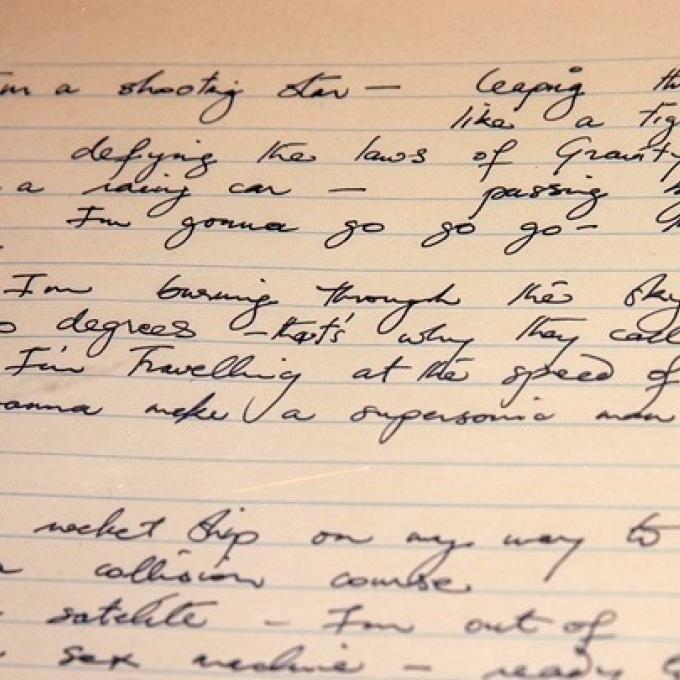 I'm a shooting star — leaping
like a
defying the laws of Gravity
a racing car — passing
I'm gonna go go go -
I'm burning through the sky
degrees - that's why they call
I'm Travelling at the speed of
make a supersonic man
rocket ship on my way to
collision course
satelite - I'm out of
sex machine - ready